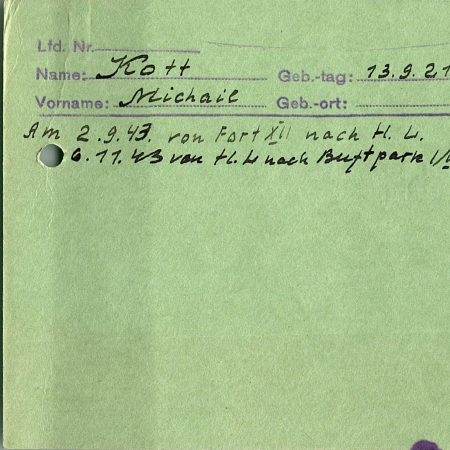 Lfd. Nr.
Name: Kott Geb.-tag: 13.9.21
Vorname: Michail Geb.-ort:
Am 2.9.43. von Fort XII nach H. L.
6.11.43 von H. L. nach